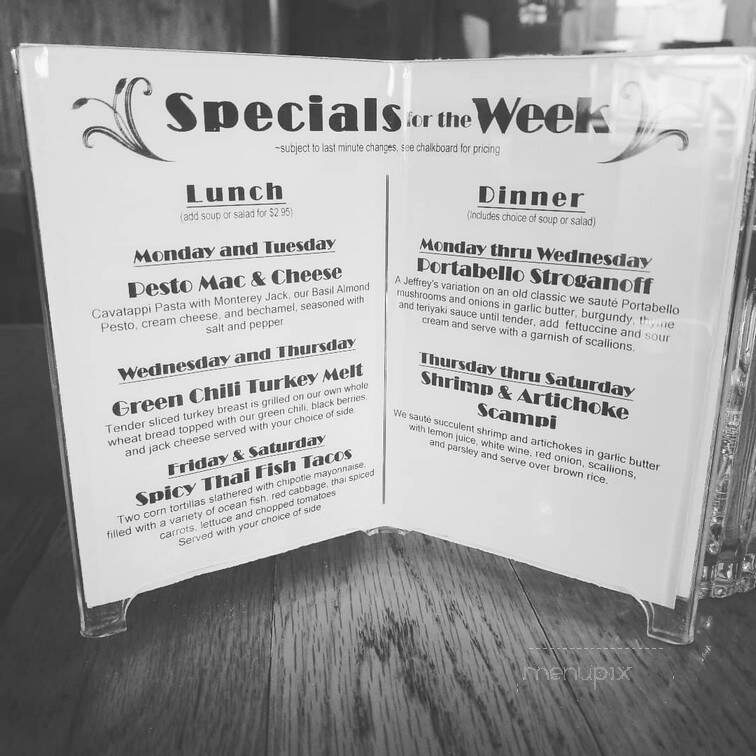 Specials for the Week
~subject to last minute changes, see chalkboard for pricing
Lunch
(add soup or salad for $2.95)
Monday and Tuesday
Pesto Mac & Cheese
Cavatappi Pasta with Monterey Jack, our Basil Almond
Pesto, cream cheese, and bechamel, seasoned with
salt and pepper
Wednesday and Thursday
Green Chili Turkey Melt
Tender sliced turkey breast is grilled on our own whole
wheat bread topped with our green chili, black berries,
and jack cheese served with your choice of side
Friday & Saturday
Spicy Thai Fish Tacos
Two corn tortillas slathered with chipotle mayonnaise,
filled with a variety of ocean fish, red cabbage, thai spiced
carrots, lettuce and chopped tomatoes
Served with your choice of side
Dinner
(Includes choice of soup or salad)
Monday thru Wednesday
Portabello Stroganoff
A Jeffrey's variation on an old classic we sauté Portabello
mushrooms and onions in garlic butter, burgundy, thyme
and teriyaki sauce until tender, add fettuccine and sour
cream and serve with a garnish of scallions.
Thursday thru Saturday
Shrimp & Artichoke
Scampi
We sauté succulent shrimp and artichokes in garlic butter
with lemon juice, white wine, red onion, scallions,
and parsley and serve over brown rice.
menupix